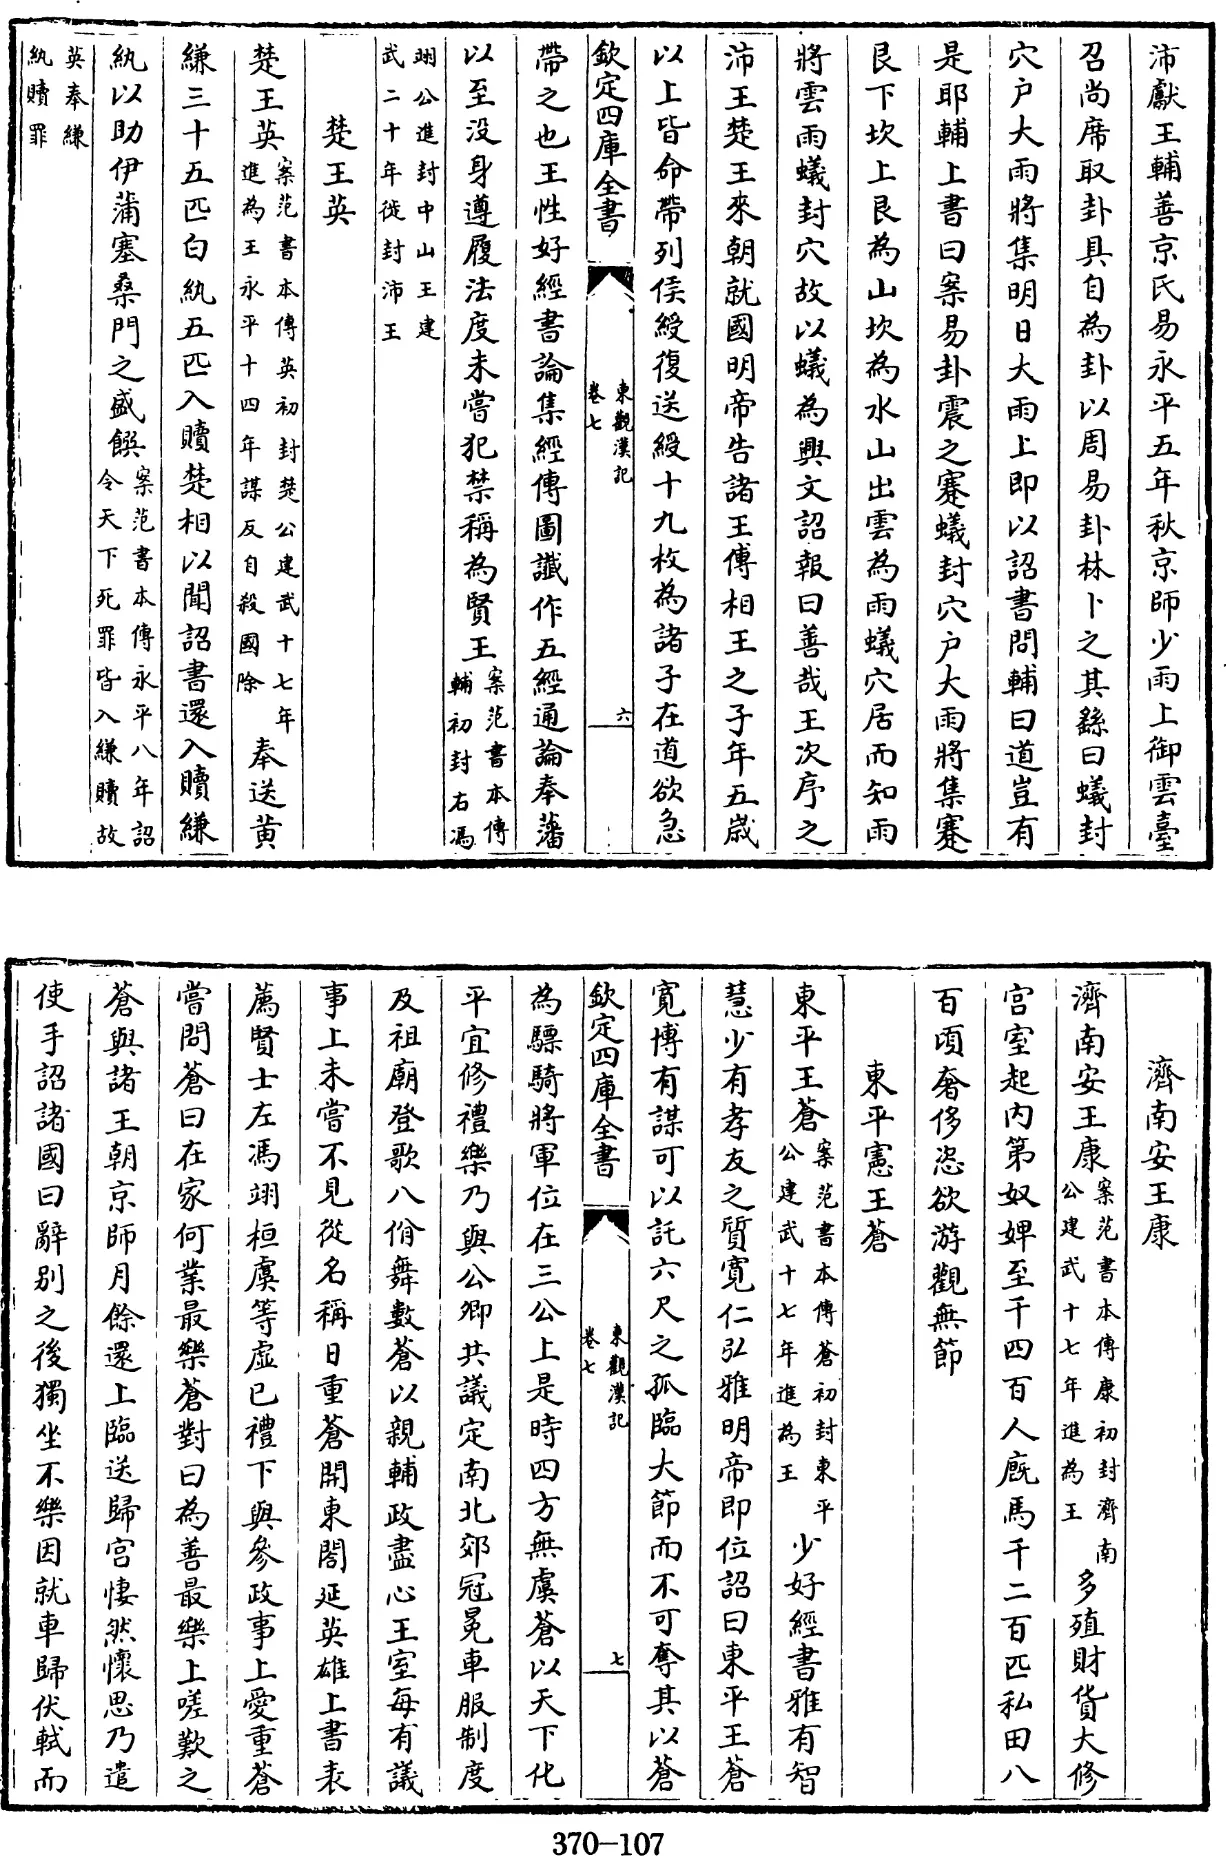 沛獻王輔善京氏易永平五年秋京師少雨上御雲臺
召尚席取卦具自為卦以周易卦林卜之其繇曰蟻封
穴戶大雨將集明日大雨上即以詔書問輔曰道豈有
是耶輔上書曰案易卦震之蹇蟻封穴戶大雨將集蹇
艮下坎上艮為山坎為水山出雲為雨蟻穴居而知雨
將雲雨蟻封穴故以蟻為興文詔報曰善哉王次序之
沛王楚王來朝就國明帝告諸王傅相王之子年五歲
以上皆命帶列侯綬復送綬十九枚為諸子在道欲急
欽定四庫全書 東觀漢記 卷七 六
帶之也王性好經書論集經傳圖讖作五經通論奉藩
以至沒身遵履法度未嘗犯禁稱為賢王案范書本傳輔初封右馮
翊公進封中山王建武二十年徙封沛王
楚王英
楚王英案范書本傳英初封楚公建武十七年進為王永平十四年謀反自殺國除奉送黃
縑三十五匹白紈五匹入贖楚相以聞詔書還入贖縑
紈以助伊蒲塞桑門之盛饌案范書本傳永平八年詔令天下死罪皆入縑贖故
英奉縑紈贖罪
濟南安王康
濟南安王康案范書本傳康初封濟南公建武十七年進為王多殖財貨大修
宮室起內第奴婢至千四百人廄馬千二百匹私田八
百頃奢侈恣欲游觀無節
東平憲王蒼
東平王蒼案范書本傳蒼初封東平公建武十七年進為王少好經書雅有智
慧少有孝友之質寬仁弘雅明帝即位詔曰東平王蒼
寬博有謀可以託六尺之孤臨大節而不可奪其以蒼
欽定四庫全書 東觀漢記 卷七 七
為驃騎將軍位在三公上是時四方無虞蒼以天下化
平宜修禮樂乃與公卿共議定南北郊冠冕車服制度
及祖廟登歌八佾舞數蒼以親輔政盡心王室每有議
事上未嘗不見從名稱日重蒼開東閤延英雄上書表
薦賢士左馮翊桓虞等虛已禮下與參政事上愛重蒼
嘗問蒼曰在家何業最樂蒼對曰為善最樂上嗟歎之
蒼與諸王朝京師月餘還上臨送歸宮悽然懷思乃遣
使手詔諸國曰辭別之後獨坐不樂因就車歸伏軾而
370-107